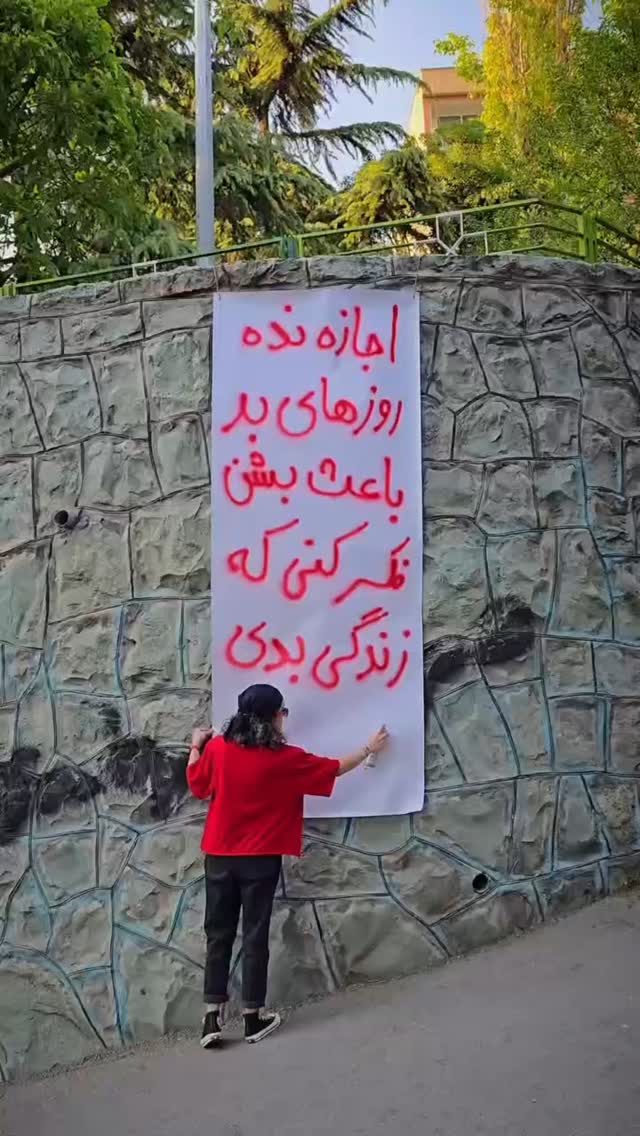 اجازه نده
روزهای بد
باعث بشن
فکر کنی که
زندگی بدی